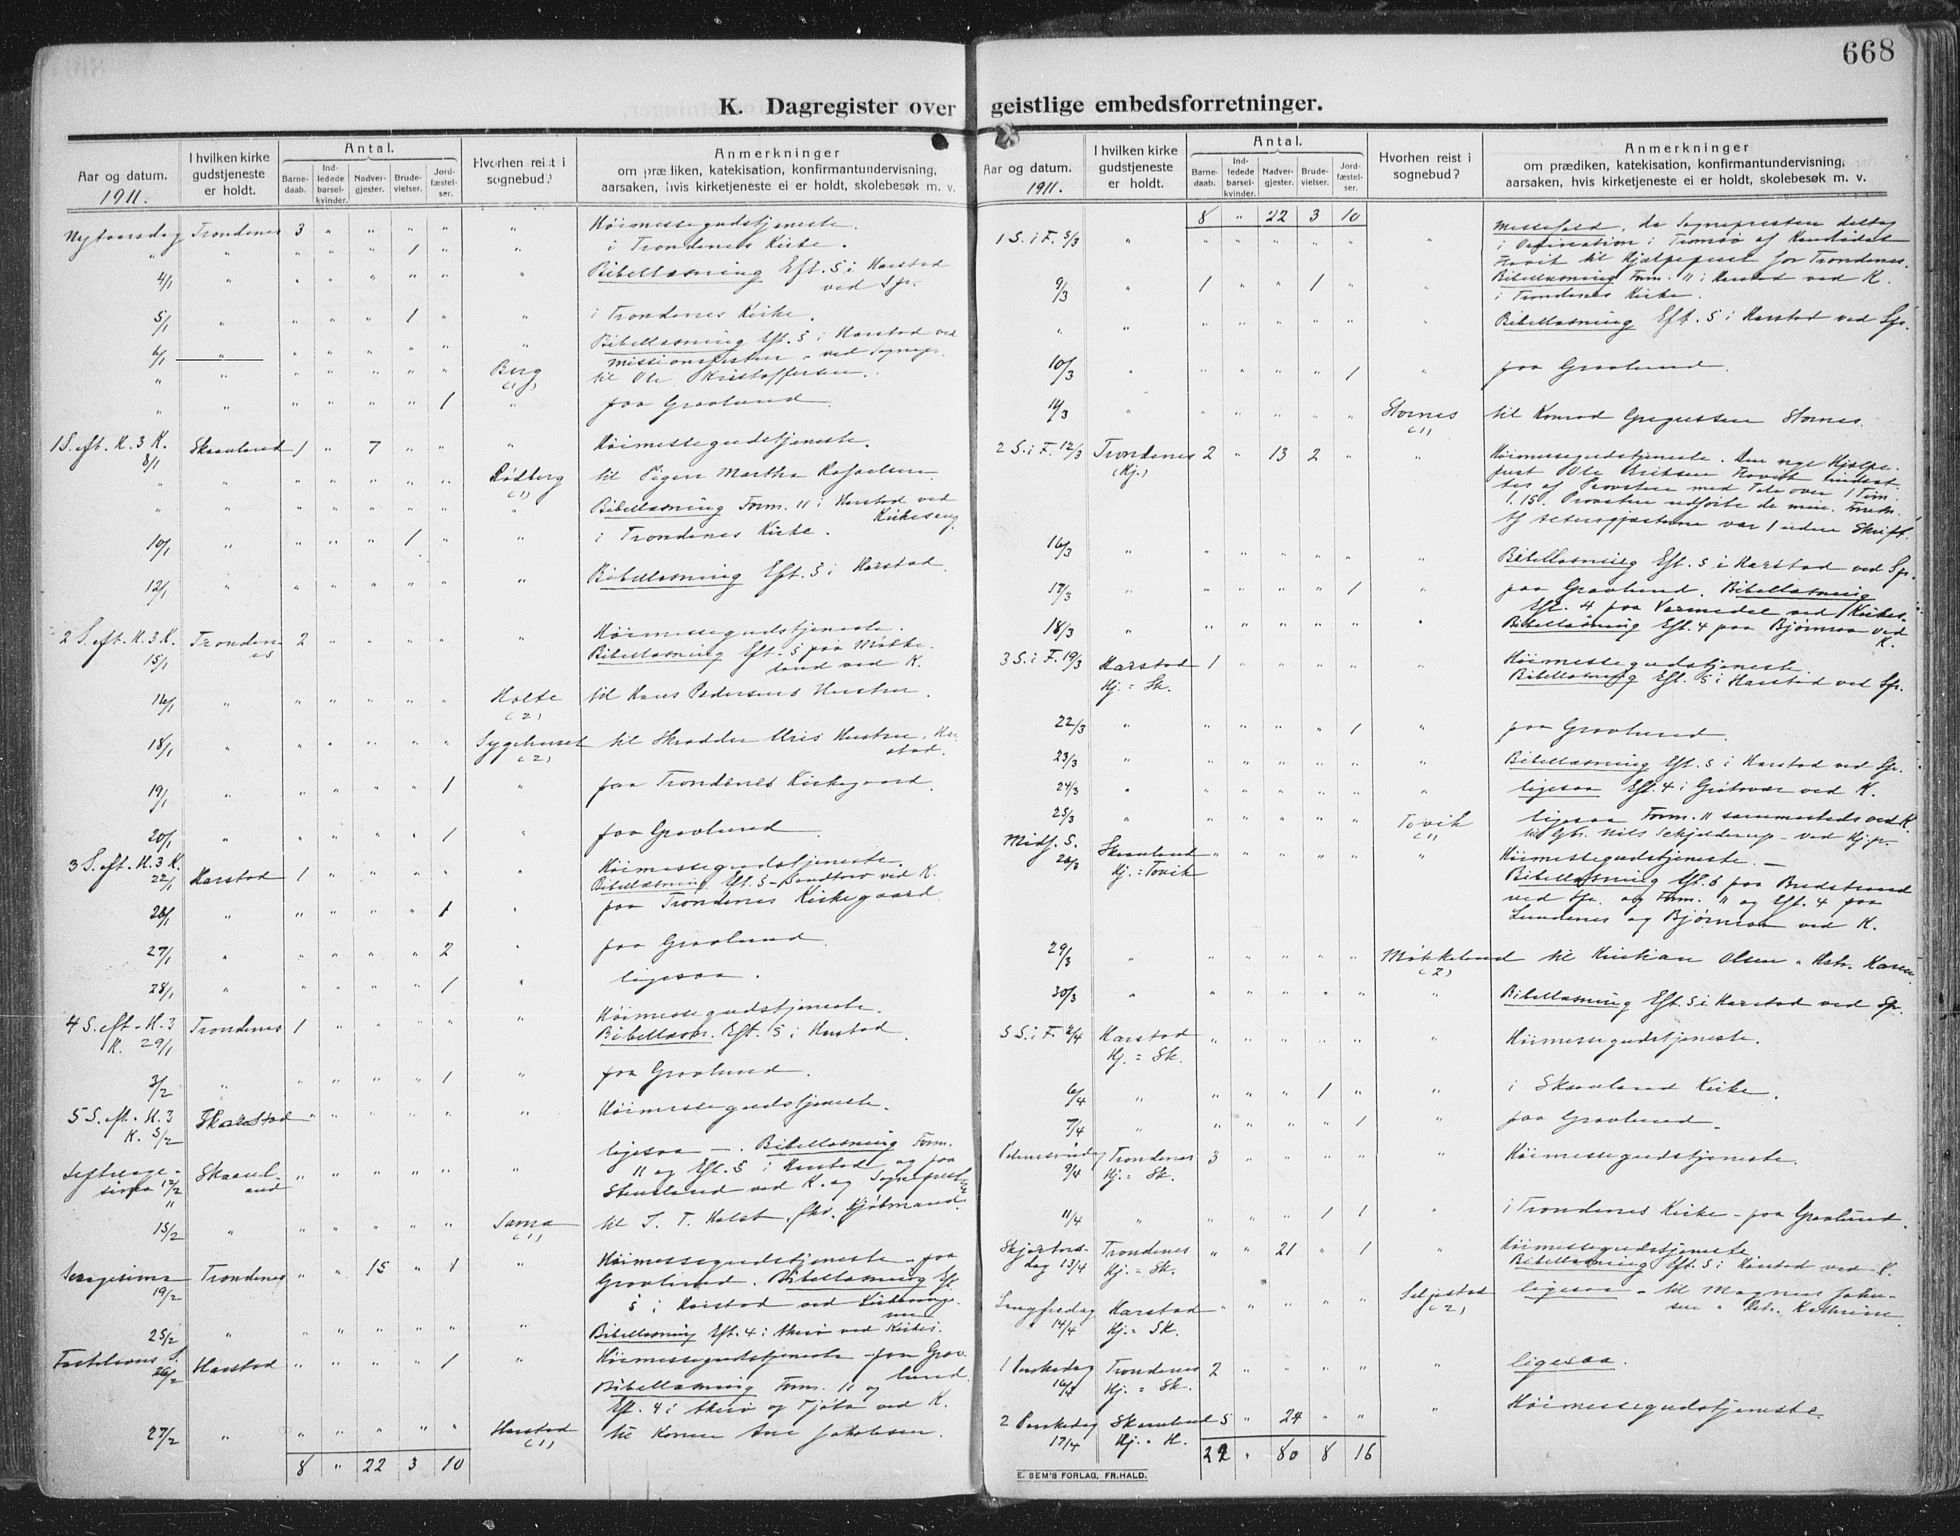 668
K. Dagregister over geistlige embedsforretninger.
Aar og datum. 1911.
I hvilken kirke gudstjeneste er holdt.
Antal.
Barnedaab.
Indledede barselkvinder.
Nadvergjester.
Brudevielser.
Jordfæstelser.
Hvorhen reist i sognebud?
Anmerkninger
om prædiken, katekisation, konfirmantundervisning,
aarsaken, hvis kirketjeneste ei er holdt, skolebesøk m. v.
Nytaarsdag Trondenes 3 " " " " " Høimessegudstjeneste.
" " " " " 1 " " i Trondenes Kirke.
4/1 " " " " " " " Bibellæsning Eft. 5 i Harstad
ved Sp.
5/1 " " " " 1 " " i Trondenes Kirke.
6/1 " " " " " " " Bibellæsning Eft. 5 i Harstad ved
" " " " " " " Berg
(1) til Ole Kristoffersen.
" " " " " " 1 " paa Gravlund.
1 S. eft. H. 3 K.
8/1 Skaanland 1 " 7 " " " Høimessegudstjeneste.
" " " " " " " Rødberg
(1) til Pigen Martha
" " " " " " " " Bibellæsning Form. 11 i Harstad ved
10/1 " " " " 1 " " i Trondenes Kirke.
12/1 " " " " " " " Bibellæsning Eft. 5 i Harstad.
2 S. eft. H. 3 K.
15/1 Trondenes 2 " " " " " Høimessegudstjeneste.
Bibellæsning Eft. 5 paa Møkkeland
ved K.
16/1 " " " " " " Holte
(2) til Hans Pedersens Hustru.
18/1 " " " " " " Sygehuset
(2) til Skrædder Hustru, Harstad.
19/1 " " " " " 1 " paa Trondenes Kirkegaard.
20/1 " " " " " 1 " paa Gravlund.
3 S. eft. H. 3 K.
22/1 Harstad 1 " " " " " Høimessegudstjeneste.
Bibellæsning Eft. 5 Sandtorv ved K.
26/1 " " " " " 1 " paa Trondenes Kirkegaard.
27/1 " " " " " 2 " paa Gravlund.
28/1 " " " " " 1 " ligesaa.
4 S. eft. H. 3
K. 29/1 Trondenes 1 " " " " " Høimessegudstjeneste.
Bibellæsn. Eft. 5 i Harstad.
3/2 " " " " " 1 " paa Gravlund.
5 S. eft. H. 3
K. 5/2 Harstad " " " " " " Høimessegudstjeneste.
12/2 Skaanland " " " " " " ligesaa -. Bibellæsning Form.
11 og Eft. 5 i Harstad og paa
ved K. og
15/2 " " " " " " Sama
(1) til
Sexagesima
19/2 Trondenes " " 15 " 1 " Høimessegudstjeneste - paa
Gravlund. Bibellæsning Eft.
5 i Harstad ved
25/2 " " " " " " " Bibellæsning Eft. 4 i ved
Fastelavns S.
26/2 Harstad " " " " 1 " Høimessegudstjeneste - paa Gravlund.
Bibellæsning Form. 11 og
Eft. 4 i og ved K.
27/2 " " " " " " Harstad
(1) til Konen Ane Jakobsen.
8 " 22 3 10
Aar og datum. 1911.
I hvilken kirke gudstjeneste er holdt.
Antal.
Barnedaab.
Indledede barselkvinder.
Nadvergjester.
Brudevielser.
Jordfæstelser.
Hvorhen reist i sognebud?
Anmerkninger
om prædiken, katekisation, konfirmantundervisning,
aarsaken, hvis kirketjeneste ei er holdt, skolebesøk m. v.
8 " 22 3 10
1 S. i F. 5/3 " " " " " " " Messefald, da Sognepresten deltog
i Ordination i Tromsø af Kandidat
Hovit til Hjælpeprest for Trondenes.
Bibellæsning Form. 11 i Harstad ved K.
9/3 " 1 " " 1 " " i Trondenes Kirke.
" " " " " " " " Bibellæsning Eft. 5 i Harstad ved Sp.
10/3 " " " " " 1 " paa Gravlund.
14/3 " " " " " " Stornes
(1) til Konrad Gregersten Stornes.
2 S. i F. 12/3 Trondenes
(Hj.) 2 " 13 2 " " Høimessegudstjeneste. Den nye Hjælpeprest
Ole Hovit indsattes
af Provsten med Tale over 1 Tim.
1.15. Provsten udførte de min. Forretn.
16/3 " " " " " " " Bibellæsning Eft. 5 i Harstad ved Sp.
17/3 " " " " " 1 " paa Gravlund. Bibellæsning
Eft. 4 paa ved
18/3 " " " " " " " Bibellæsning Eft. 4 paa Bjørnraa ved
K.
3 S. i F. 19/3 Harstad
Hj. = Sk. 1 " " " " " Høimessegudstjeneste.
Bibellæsning Eft. 5 i Harstad ved Sp.
22/3 " " " " " 1 " paa Gravlund.
23/3 " " " " " " " Bibellæsning Eft. 5 i Harstad ved Sp.
24/3 " " " " " " " ligesaa Eft. 4 i Grøtavær ved K.
25/3 " " " " " " Tovik
(1) ligesaa Form. 11 sammesteds ved K.
til Gbr. Nils Schjelderup - ved Hj.pr.
Midf. S.
26/3 Skaanland
Hj. = Tovik " " " " " " Høimessegudstjeneste. -
Bibellæsning Eft. 5 paa Bredstrand
ved Sp. og Form. 11 og Eft. 4 paa
Lundenes og Bjørnraa ved K.
29/3 " " " " " " Møkkeland
(2) til Kristian Olsen " Hstr. Karen.
30/3 " " " " " " " Bibellæsning Eft. 5 i Harstad ved Sp.
5 S. i F. 2/4 Harstad
Hj. = Sk. " " " " " " Høimessegudstjeneste.
6/4 " " " " 1 " " i Skaanland Kirke.
7/4 " " " " " 1 " paa Gravlund.
Palmesøndag
9/4 Trondenes
Hj. = Sk. 3 " " " " " Høimessegudstjeneste.
11/4 " " " " 1 1 " i Trondenes Kirke - paa Gravlund.
Skjærtorsdag
13/4 Trondenes
Hj. = Sk. " " 21 " 1 " Høimessegudstjeneste
Bibellæsning Eft. 5 i Harstad ved K.
Langfredag
14/4 Harstad
Hj. = Sk. " " " " " Seljestad
(2) ligesaa - til Magnus Johnsen
" Kathrine
1 Paaskedag
16/4 Trondenes
Hj. = Sk. 2 " " " " " ligesaa.
2 Paaskedag
17/4 Skaanland
Hj. = H. 5 " 24 " " " Høimessegudstjeneste.
22 " 80 8 16
E. SEM'S FORLAG, FR.HALD.